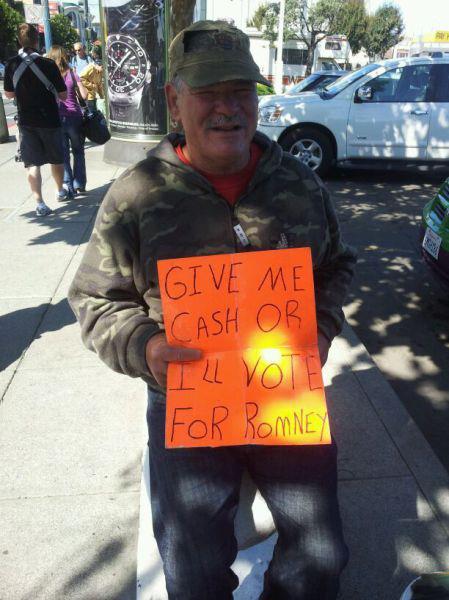 GIVE ME
CASH OR
I'LL VOTE
FOR ROMNEY
PAY